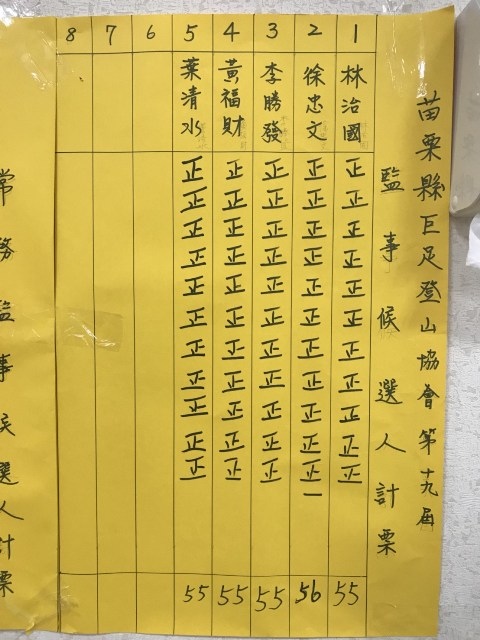 苗栗縣巨足登山協會第十九屆
監事候選人計票
1
林治國
正正正正正正正正正正正
55
2
徐忠文
正正正正正正正正正正正一
56
3
李勝發
正正正正正正正正正正正
55
4
黃福財
正正正正正正正正正正正
55
5
葉清水
正正正正正正正正正正正
55
6
7
8
常務監事候選人計票